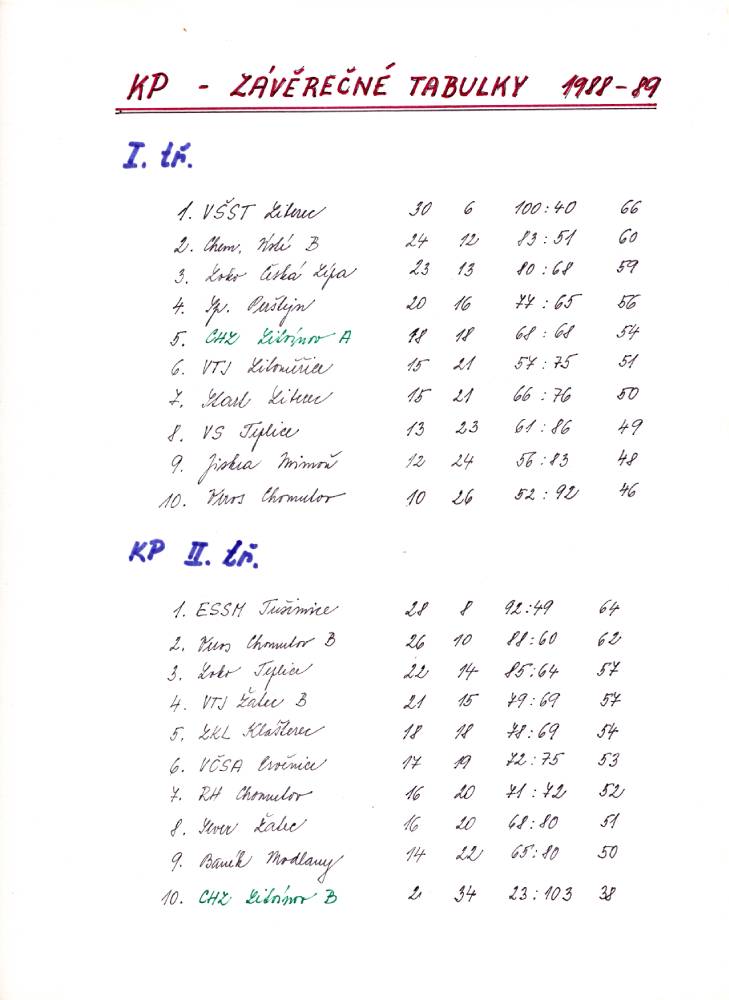 KP - ZÁVĚREČNÉ TABULKY 1988-89
I. tř.
1. VŠST Liberec 30 6 100:40 66
2. Chem. Ústí B 24 12 83:51 60
3. Loko Česká Lípa 23 13 80:68 59
4. Sp. Perštejn 20 16 77:65 56
5. CHZ Litvínov A 18 18 68:68 54
6. VTJ Litoměřice 15 21 57:75 51
7. Liberec 15 21 66:76 50
8. VS Teplice 13 23 61:86 49
9. Jiskra Mimoň 12 24 56:83 48
10. Chomutov 10 26 52:92 46
KP II. tř.
1. ESSM Tušimice 28 8 92:49 64
2. Chomutov B 26 10 88:60 62
3. Loko Teplice 22 14 85:64 57
4. VTJ Žatec B 21 15 79:69 57
5. ZKL Klášterec 18 18 78:69 54
6. VČSA Ervěnice 17 19 72:75 53
7. RH Chomutov 16 20 71:72 52
8. Sever Žatec 16 20 68:80 51
9. Baník Modlany 14 22 65:80 50
10. CHZ Litvínov B 2 34 23:103 38